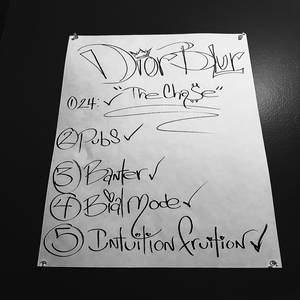 Dior Blur
① 24: ✓ "The Chase"
② Pubs ✓
③ Banter ✓
④ Bial Mode ✓
⑤ Intuition fruition ✓